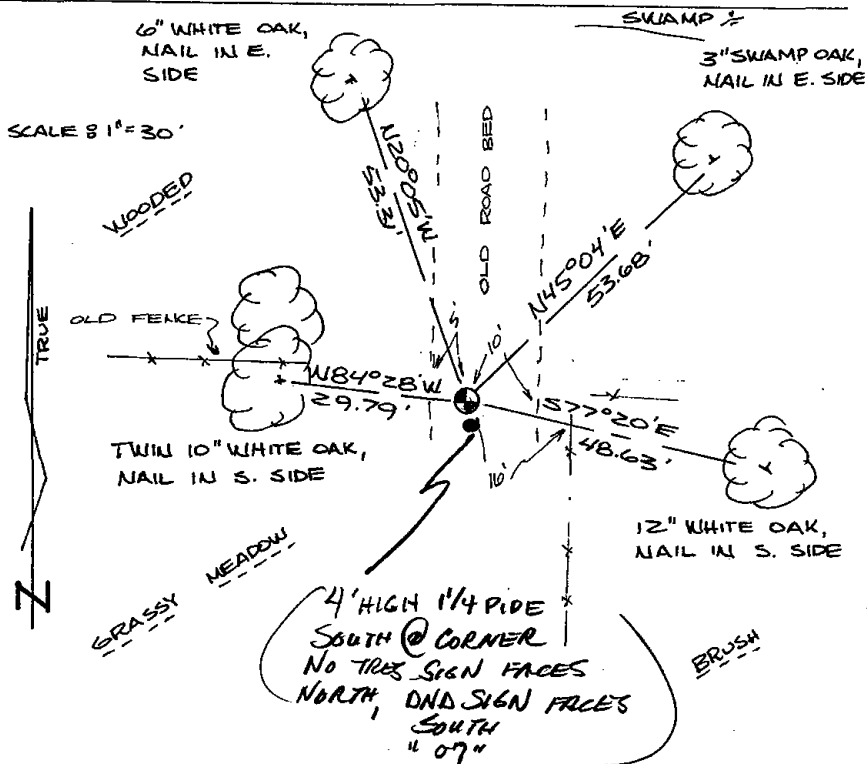 SWAMP
6" WHITE OAK,
NAIL IN E.
SIDE
3" SWAMP OAK,
NAIL IN E. SIDE
SCALE : 1" = 30'
WOODED
N20°05'W
53.31'
OLD ROAD BED
N45°04'E
53.68'
TRUE
OLD FENCE
5'
10'
N84°28'W
29.79'
S77°20'E
48.63'
16'
TWIN 10" WHITE OAK,
NAIL IN S. SIDE
12" WHITE OAK,
NAIL IN S. SIDE
GRASSY MEADOW
N
4' HIGH 1 1/4 PIPE
SOUTH @ CORNER
NO TRES SIGN FACES
NORTH, DND SIGN FACES
SOUTH
"07"
BRUSH